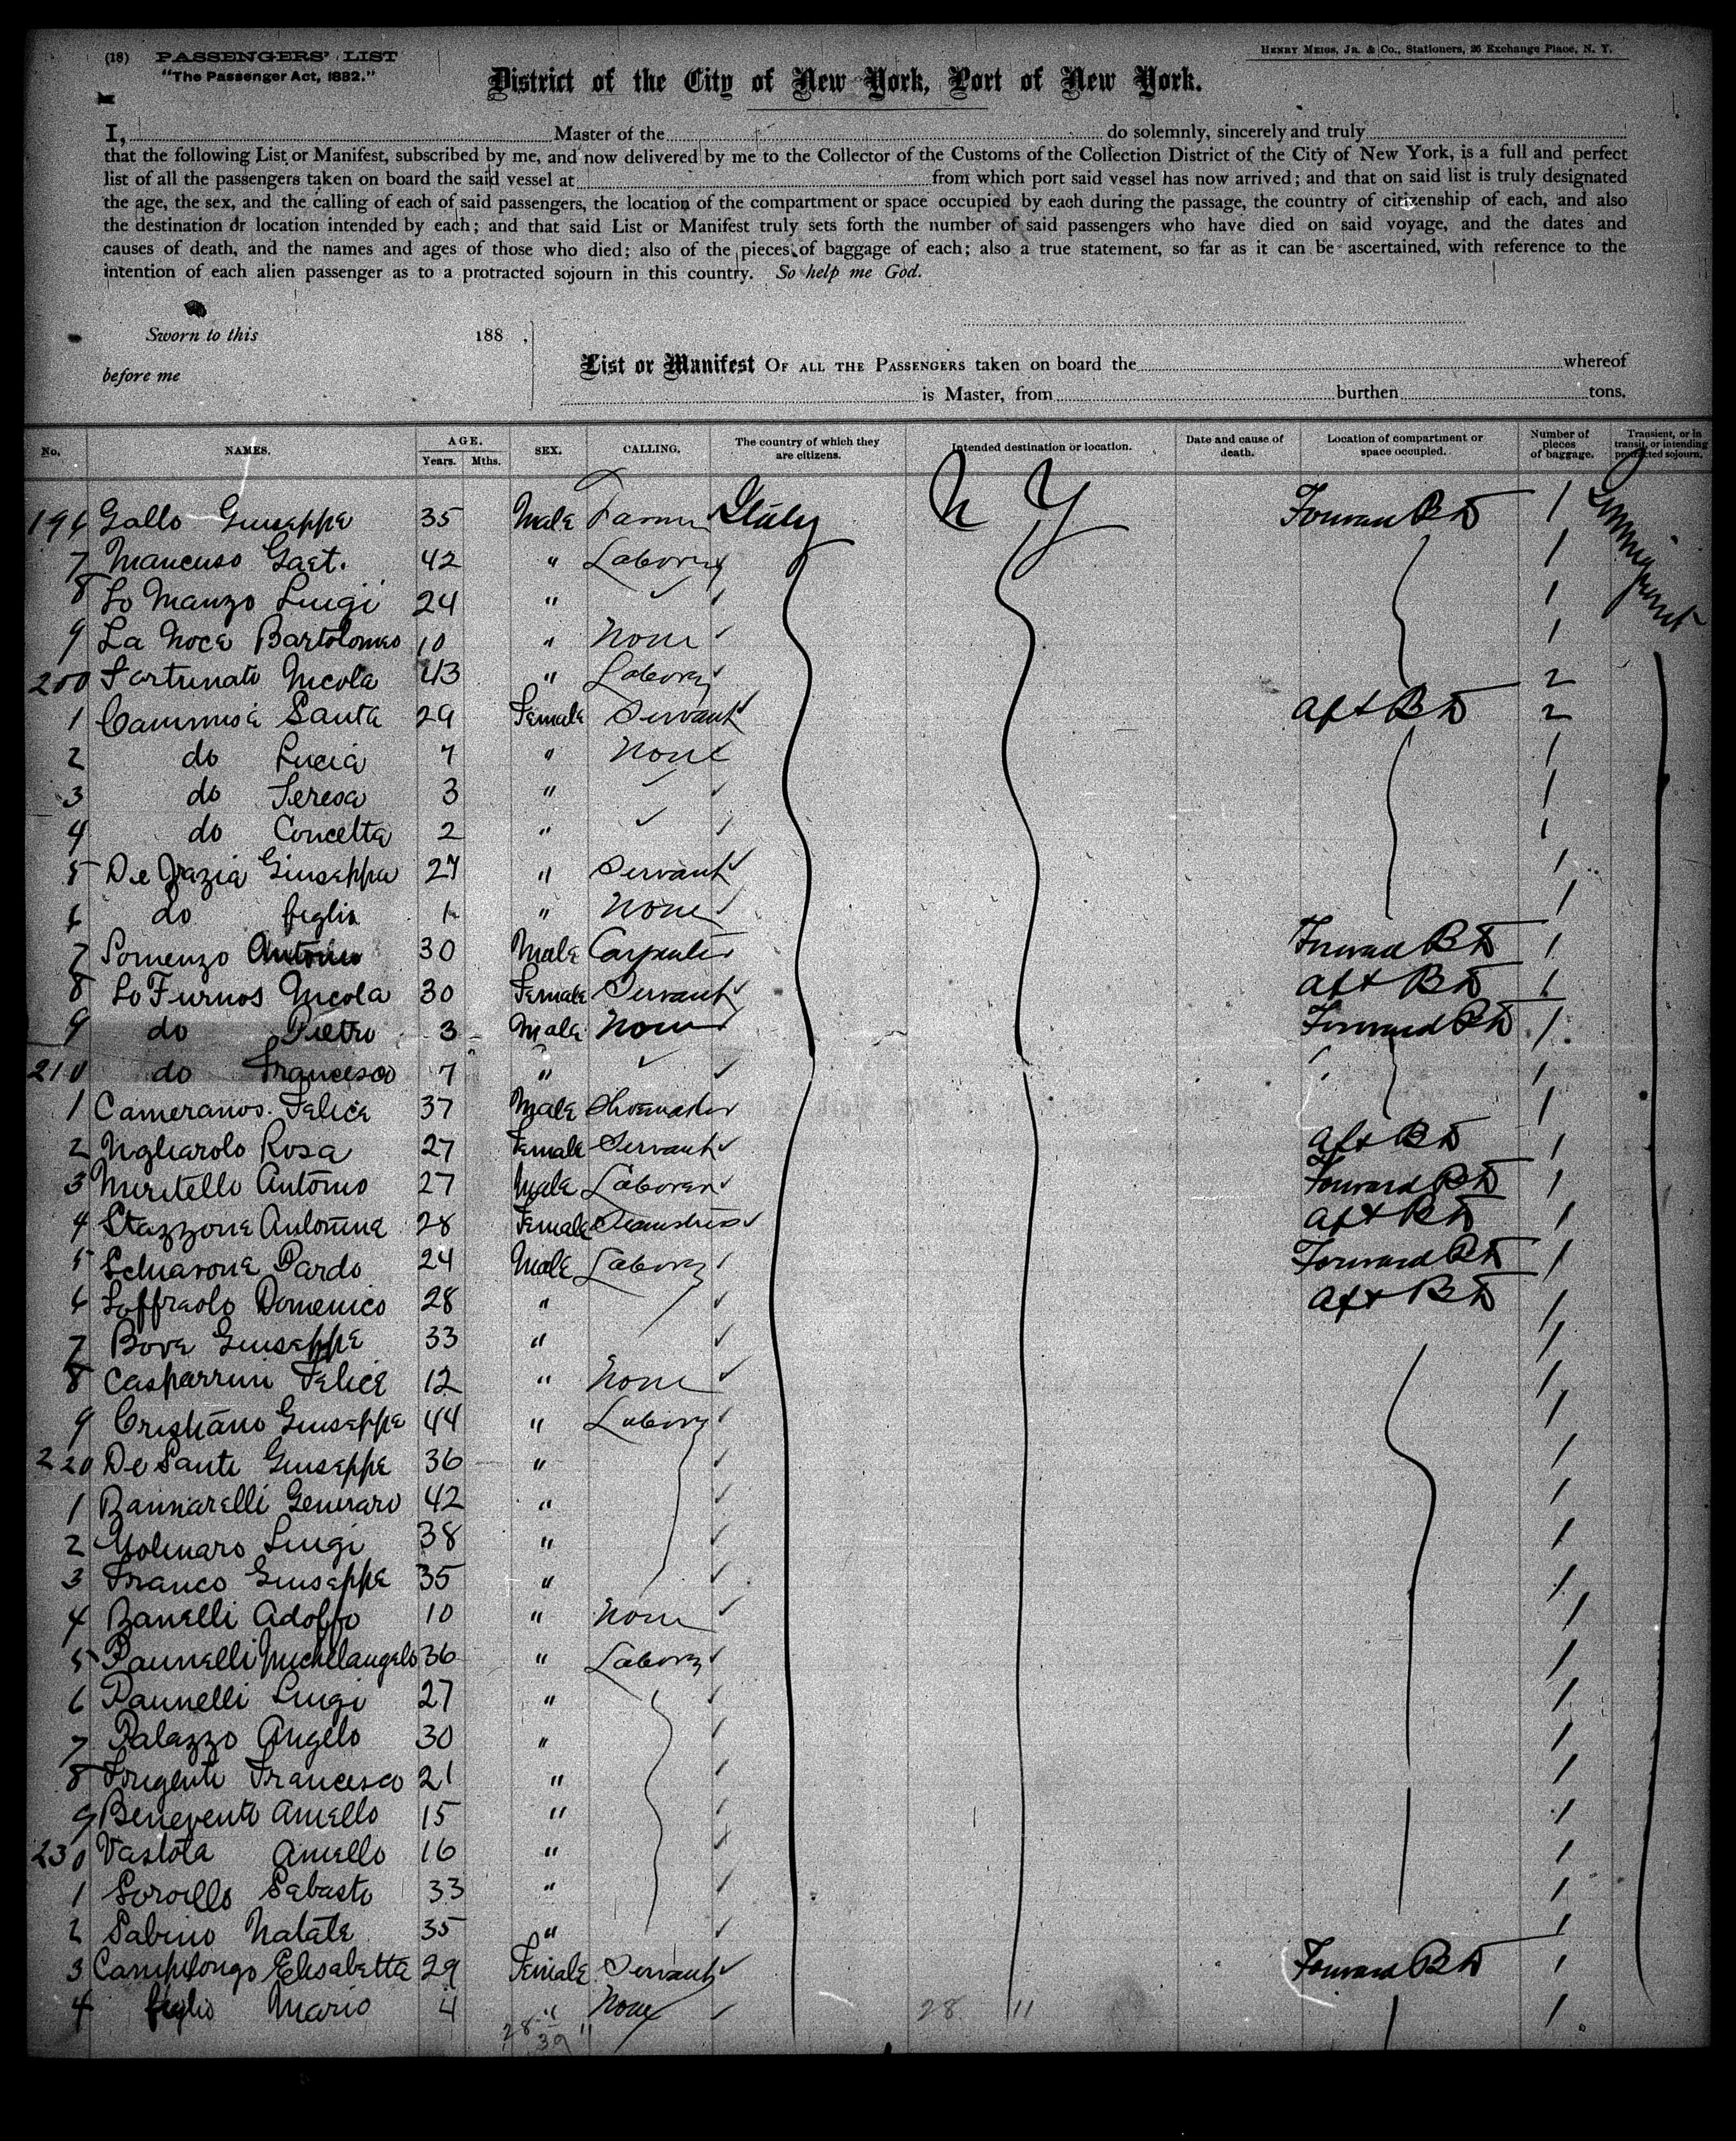 (18) PASSENGERS' LIST
"The Passenger Act, 1882."
HENRY MEIGS, JR. & Co., Stationers, 26 Exchange Place, N. Y.
District of the City of New York, Port of New York.
I, Master of the do solemnly, sincerely and truly
that the following List or Manifest, subscribed by me, and now delivered by me to the Collector of the Customs of the Collection District of the City of New York, is a full and perfect
list of all the passengers taken on board the said vessel at from which port said vessel has now arrived; and that on said list is truly designated
the age, the sex, and the calling of each of said passengers, the location of the compartment or space occupied by each during the passage, the country of citizenship of each, and also
the destination or location intended by each; and that said List or Manifest truly sets forth the number of said passengers who have died on said voyage, and the dates and
causes of death, and the names and ages of those who died; also of the pieces of baggage of each; also a true statement, so far as it can be ascertained, with reference to the
intention of each alien passenger as to a protracted sojourn in this country. So help me God.
Sworn to this 188 ,
before me
List or Manifest OF ALL THE PASSENGERS taken on board the whereof
is Master, from burthen tons.
No. NAMES. AGE. Years. Mths. SEX. CALLING. The country of which they are citizens. Intended destination or location. Date and cause of death. Location of compartment or space occupied. Number of pieces of baggage. Transient, or in transit, or intending protracted sojourn.
196 Gallo Giuseppe 35 Male Farmer Italy N Y Forward BD 1
7 Mancuso Gaet. 42 " Laborer 1
8 Lo Manzo Luigi 24 " 1
9 La Noce Bartolomeo 10 " None 1
200 Fortunato Nicola 43 " Laborer 2
1 Santa 29 Female Servant Aft BD 2
2 do Lucia 7 " None 1
3 do Teresa 3 " 1
4 do Concetta 2 " 1
5 De Grazia Giuseppa 27 " Servant 1
6 do figlia 1 " None 1
7 Somenzo Antonio 30 Male Carpenter Forward BD 1
8 Lo Furnos Nicola 30 Female Servant Aft BD 1
9 do Pietro 3 Male None Forward BD 1
210 do Francesco 7 " 1
1 Cameranos Felice 37 Male Shoemaker 1
2 Ugliarolo Rosa 27 Female Servant Aft BD 1
3 Miritello Antonio 27 Male Laborer Forward BD 1
4 Stazzone Antonina 28 Female Seamstress Aft BD 1
5 Schiavone Pardo 24 Male Laborer Forward BD 1
6 Loffraolo Domenico 28 " Aft BD 1
7 Bove Giuseppe 33 " 1
8 Casparrini Felice 12 " None 1
9 Cristiano Giuseppe 44 " Laborer 1
220 De Santi Giuseppe 36 " 1
1 Bannarelli Generaro 42 " 1
2 Molinaro Luigi 38 " 1
3 Franco Giuseppe 35 " 1
4 Zanelli Adolfo 10 " None 1
5 Pannelli Michelangelo 36 " Laborer 1
6 Pannelli Luigi 27 " 1
7 Palazzo Angelo 30 " 1
8 Francesco 21 " 1
9 Beneventi Aniello 15 " 1
230 Vastola Aniello 16 " 1
1 Sorvillo Sebasto 33 " 1
2 Sabino Natale 35 " 1
3 Campilongo Elisabetta 29 Female Servant Forward BD 1
4 figlio Mario 4 " None 28 11 1